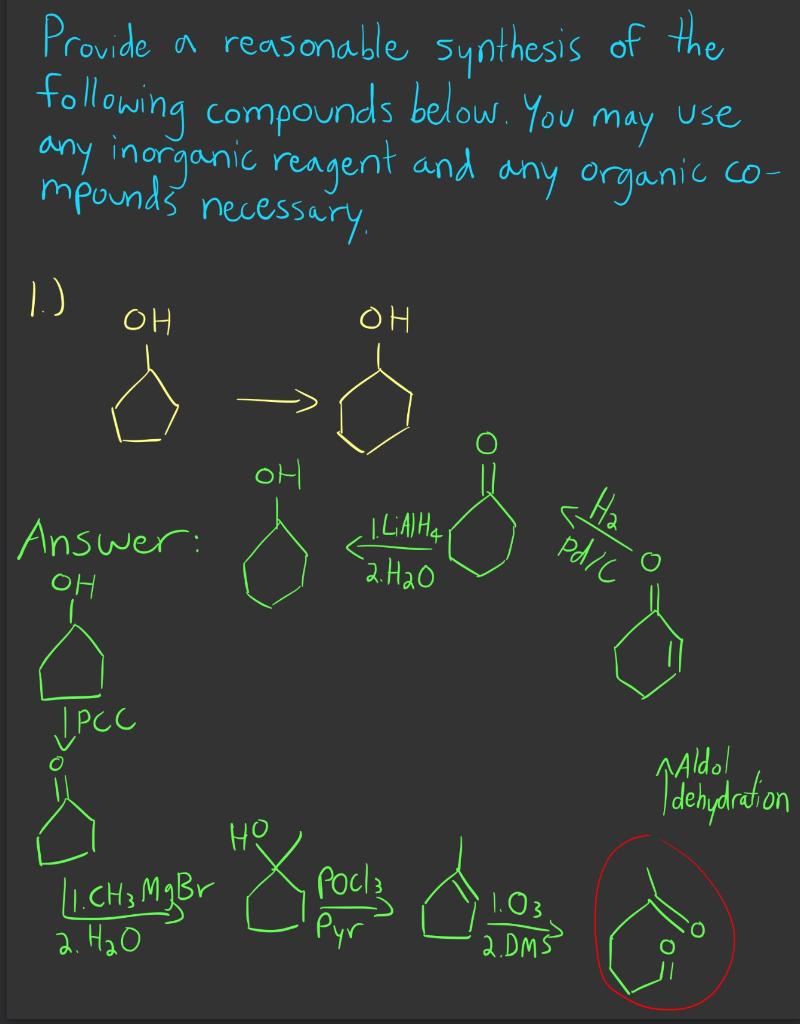 Provide a reasonable synthesis of the
following compounds below. You may use
any inorganic reagent and any organic co-
mpounds necessary.
1.)
OH
OH
O
OH
Answer:
1. LiAlH4
2. H2O
H2
Pd/C
O
OH
PCC
O
Aldol
dehydration
HO
1. CH3MgBr
2. H2O
POCl3
Pyr
1. O3
2. DMS
O
O